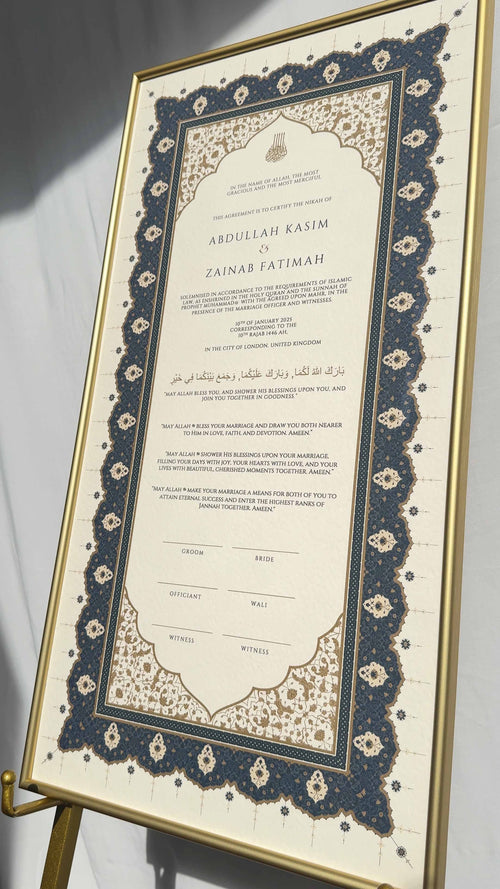 IN THE NAME OF ALLAH, THE MOST
GRACIOUS AND THE MOST MERCIFUL
THIS AGREEMENT IS TO CERTIFY THE NIKAH OF
ABDULLAH KASIM
&
ZAINAB FATIMAH
SOLEMNISED IN ACCORDANCE TO THE REQUIREMENTS OF ISLAMIC
LAW, AS ENSHRINED IN THE HOLY QURAN AND THE SUNNAH OF
PROPHET MOHAMMAD ﷺ WITH THE AGREED UPON MAHR, IN THE
PRESENCE OF THE MARRIAGE OFFICER AND WITNESSES.
10TH OF JANUARY 2025
CORRESPONDING TO THE
10TH RAJAB 1446 AH,
IN THE CITY OF LONDON, UNITED KINGDOM
بَارَكَ اللهُ لَكُمَا, وَبَارَكَ عَلَيْكُمَا, وَجَمَعَ بَيْنَكُمَا فِي خَيْرٍ
"MAY ALLAH BLESS YOU, AND SHOWER HIS BLESSINGS UPON YOU, AND
JOIN YOU TOGETHER IN GOODNESS."
"MAY ALLAH BLESS YOUR MARRIAGE AND DRAW YOU BOTH NEARER
TO HIM IN LOVE, FAITH, AND DEVOTION. AMEEN."
"MAY ALLAH SHOWER HIS BLESSINGS UPON YOUR MARRIAGE,
FILLING YOUR DAYS WITH JOY, YOUR HEARTS WITH LOVE, AND YOUR
LIVES WITH BEAUTIFUL, CHERISHED MOMENTS TOGETHER. AMEEN."
"MAY ALLAH MAKE YOUR MARRIAGE A MEANS FOR BOTH OF YOU TO
ATTAIN ETERNAL SUCCESS AND ENTER THE HIGHEST RANKS OF
JANNAH TOGETHER. AMEEN."
GROOM BRIDE
OFFICIANT WALI
WITNESS WITNESS